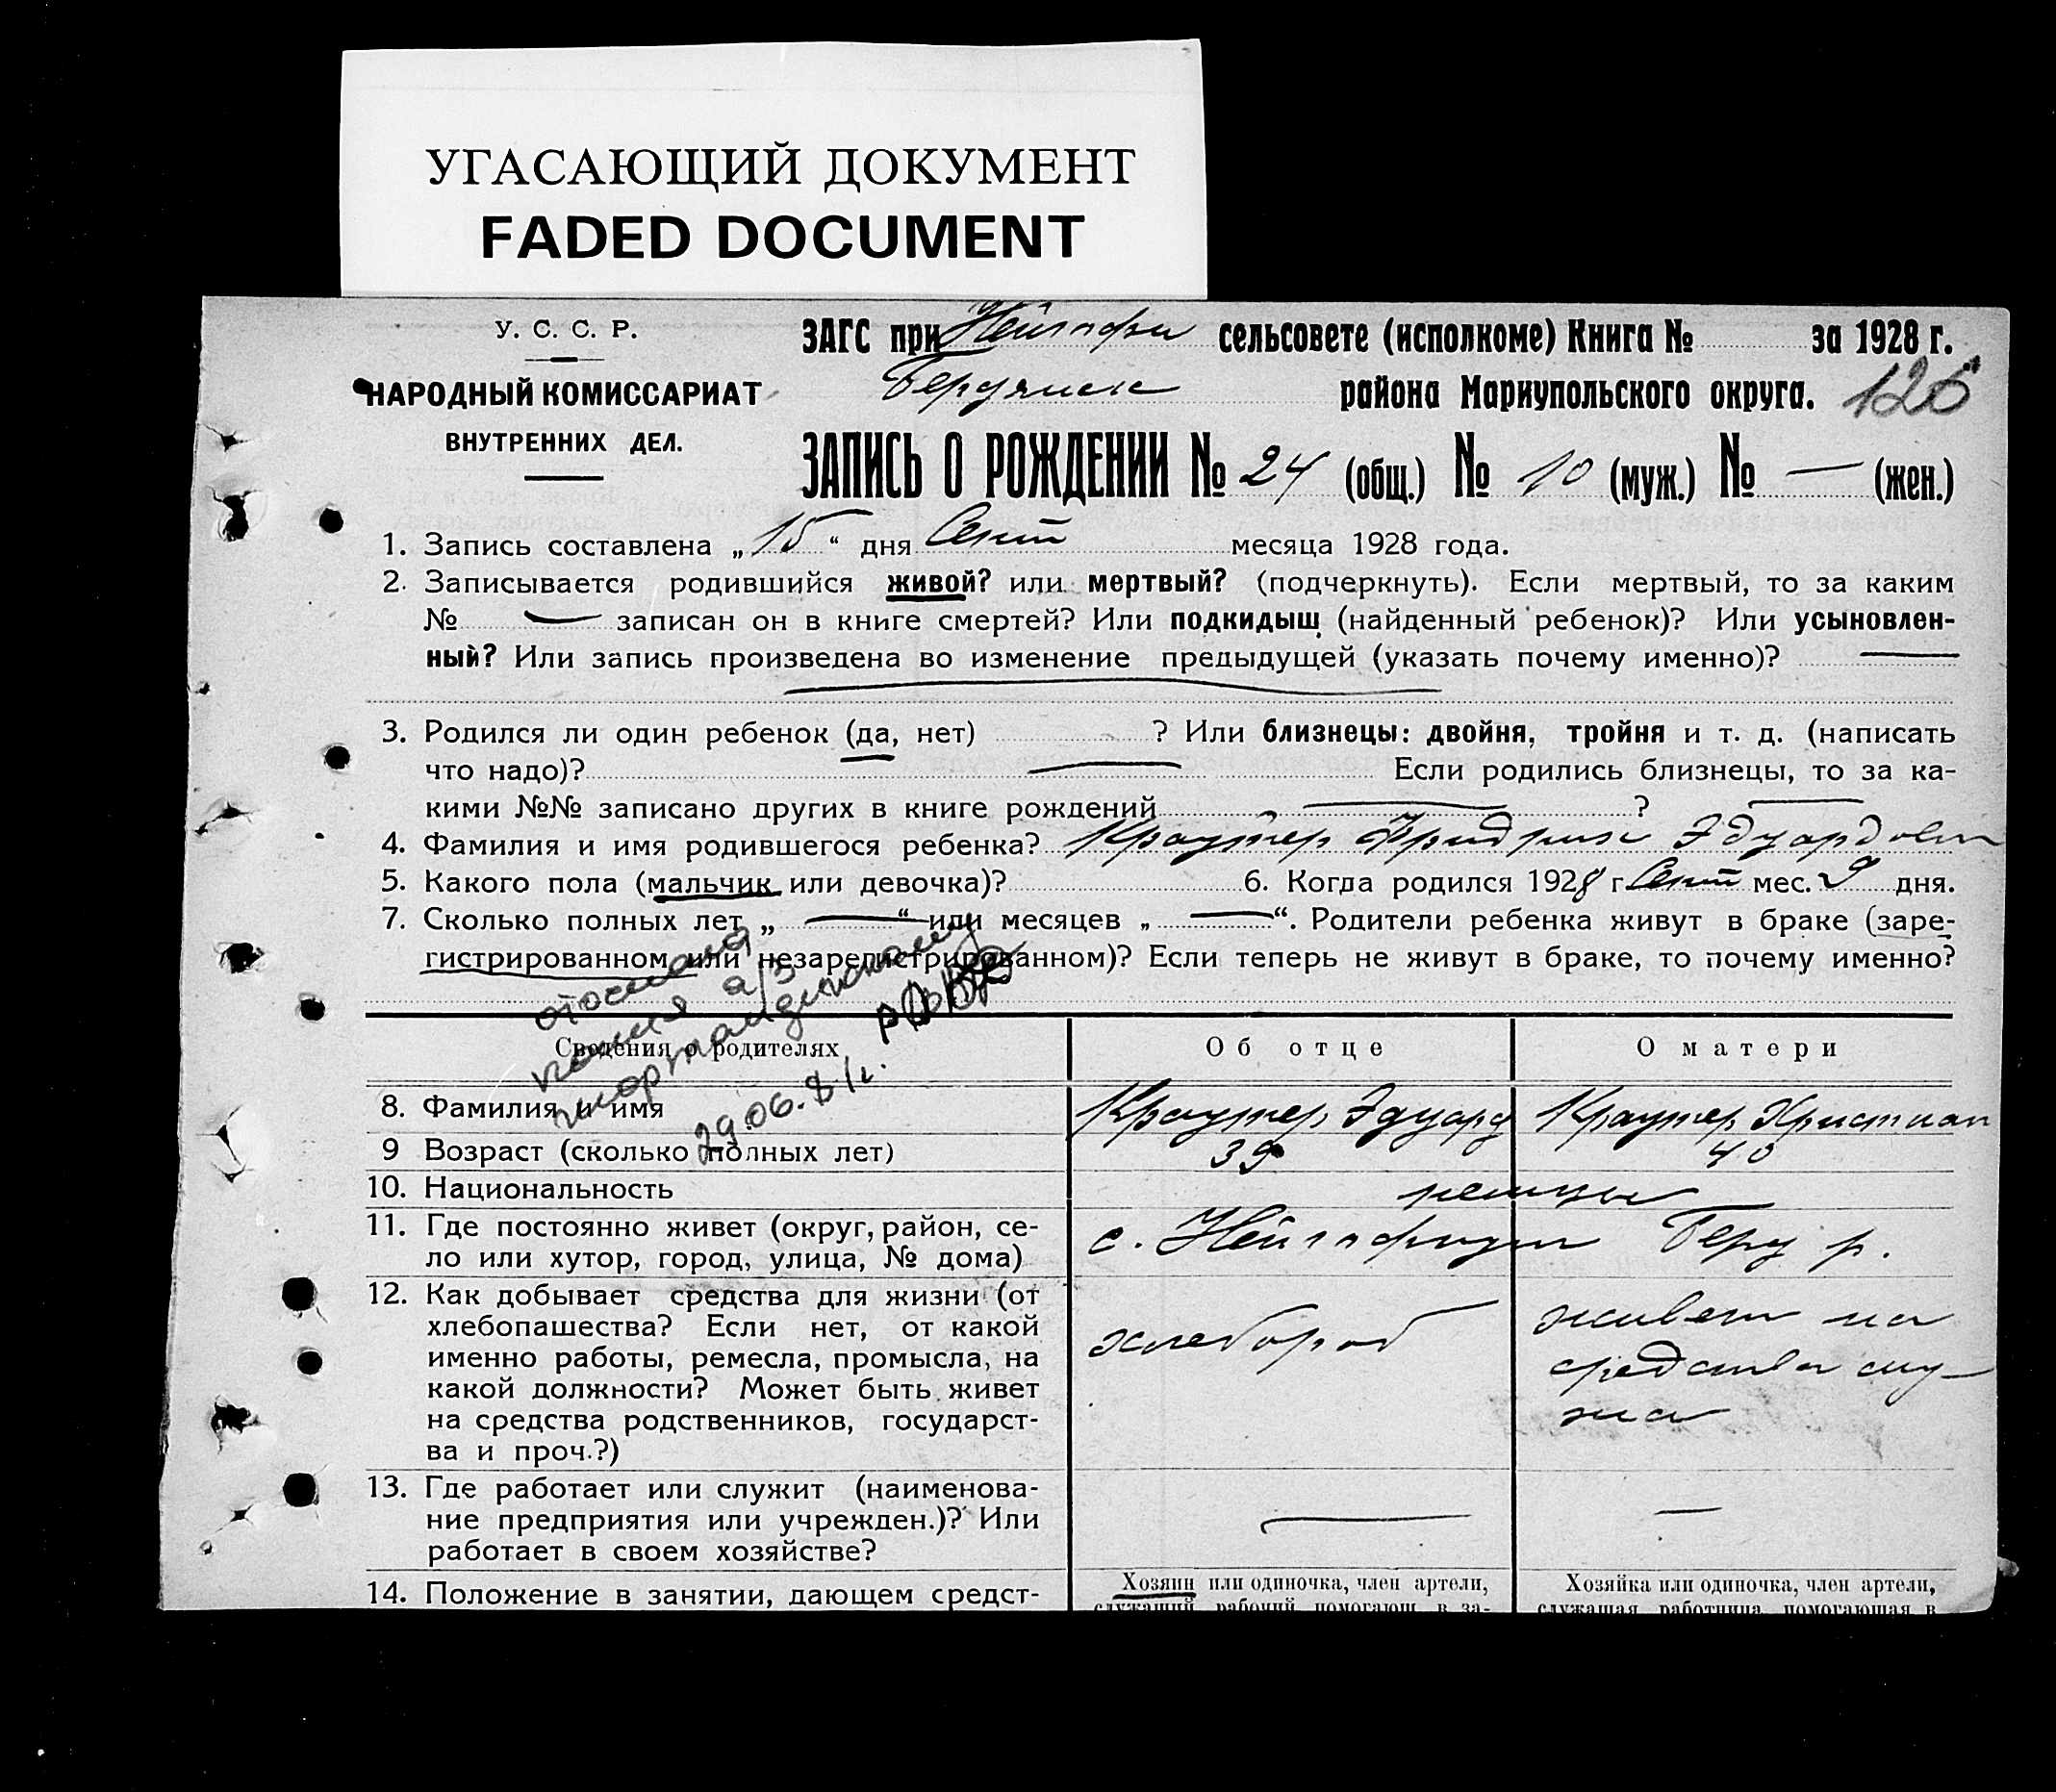 УГАСАЮЩИЙ ДОКУМЕНТ
FADED DOCUMENT
У. С. С. Р.
НАРОДНЫЙ КОМИССАРИАТ
ВНУТРЕННИХ ДЕЛ.
ЗАГС при сельсовете (исполкоме) Книга № за 1928 г.
Бердянск района Мариупольского округа. 126
ЗАПИСЬ О РОЖДЕНИИ № 24 (общ.) № 10 (муж.) № — (жен.)
1. Запись составлена „ 15 “ дня Сент месяца 1928 года.
2. Записывается родившийся живой? или мертвый? (подчеркнуть). Если мертвый, то за каким
№ — записан он в книге смертей? Или подкидыш (найденный ребенок)? Или усыновлен-
ный? Или запись произведена во изменение предыдущей (указать почему именно)? —
3. Родился ли один ребенок (да, нет) ? Или близнецы: двойня, тройня и т. д. (написать
что надо)? — Если родились близнецы, то за ка-
кими №№ записано других в книге рождений — ? —
4. Фамилия и имя родившегося ребенка? Краутер Фридрих Эдуардович
5. Какого пола (мальчик или девочка)? 6. Когда родился 1928 г Сент мес. 9 дня.
7. Сколько полных лет „ — “ или месяцев „ — “. Родители ребенка живут в браке (заре-
гистрированном или незарегистрированном)? Если теперь не живут в браке, то почему именно?
отослана
копия а/з
29.06.81г.
Сведения о родителях Об отце О матери
8. Фамилия и имя Краутер Эдуард Краутер Христиан
9 Возраст (сколько полных лет) 39 40
10. Национальность немцы
11. Где постоянно живет (округ, район, се-
ло или хутор, город, улица, № дома)
с. Берд р.
12. Как добывает средства для жизни (от
хлебопашества? Если нет, от какой
именно работы, ремесла, промысла, на
какой должности? Может быть живет
на средства родственников, государст-
ва и проч.?)
хлебороб
живет на
средства му-
жа
13. Где работает или служит (наименова-
ние предприятия или учрежден.)? Или
работает в своем хозяйстве?
— —
14. Положение в занятии, дающем средст-
Хозяин или одиночка, член артели,
служащий, рабочий, помогающ. в за-
Хозяйка или одиночка, член артели,
служащая, работница, помогающая в